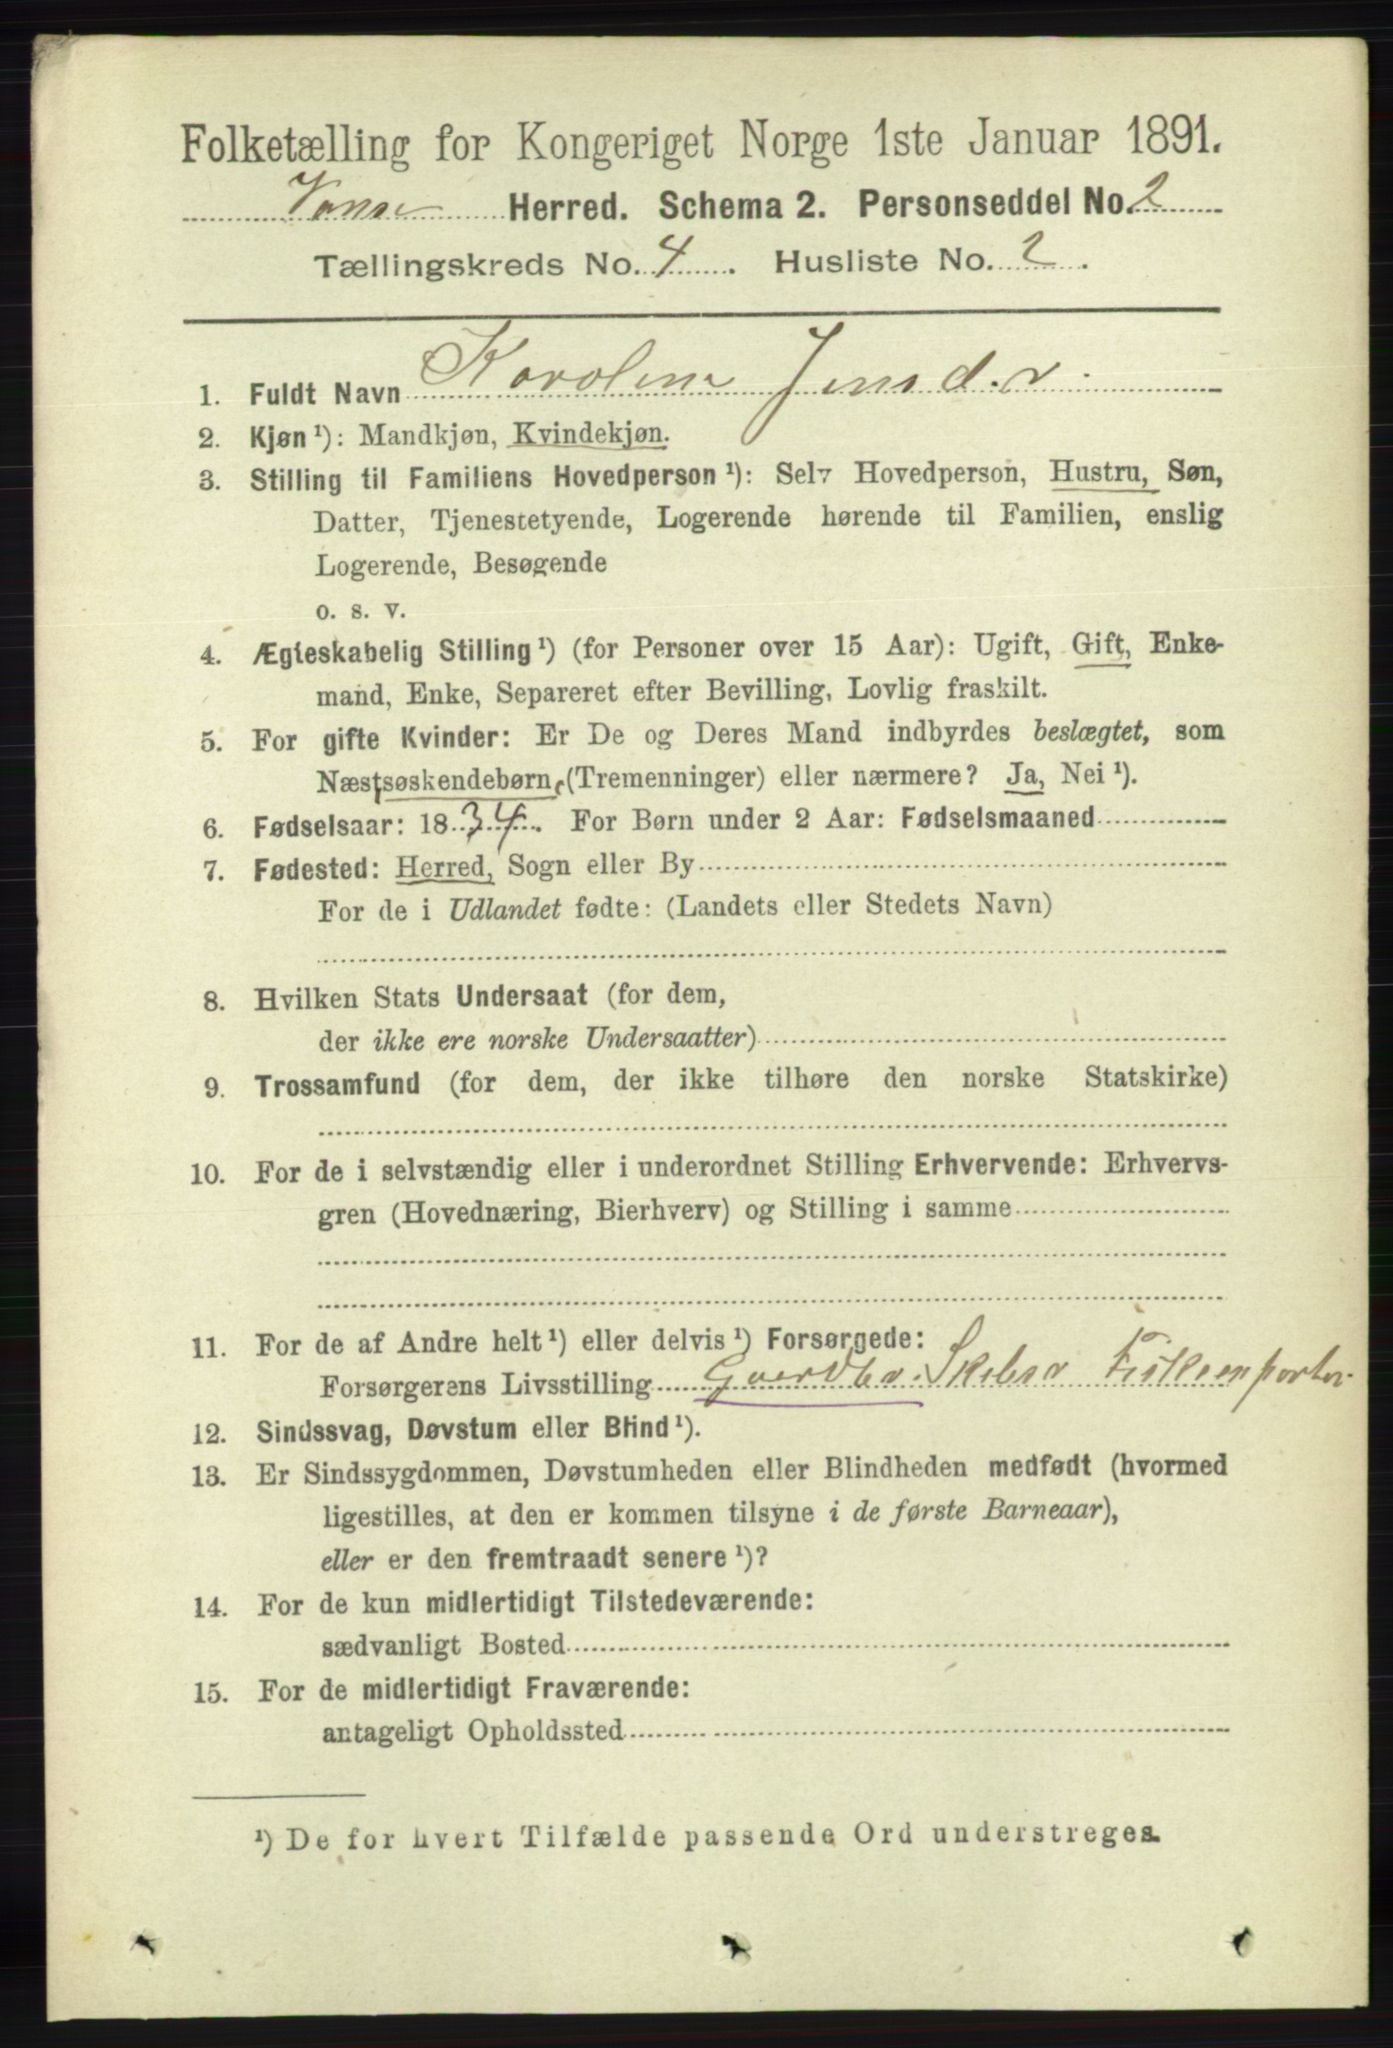 Folketælling for Kongeriget Norge 1ste Januar 1891.
Vanse Herred. Schema 2. Personseddel No. 2
Tællingskreds No. 4. Husliste No. 2.
1. Fuldt Navn Karoline Jensd.r
2. Kjøn¹): Mandkjøn, Kvindekjøn.
3. Stilling til Familiens Hovedperson¹): Selv Hovedperson, Hustru, Søn,
Datter, Tjenestetyende, Logerende hørende til Familien, enslig
Logerende, Besøgende
o. s. v.
4. Ægteskabelig Stilling¹) (for Personer over 15 Aar): Ugift, Gift, Enke-
mand, Enke, Separeret efter Bevilling, Lovlig fraskilt.
5. For gifte Kvinder: Er De og Deres Mand indbyrdes beslægtet, som
Næstsøskendebørn (Tremenninger) eller nærmere? Ja, Nei¹).
6. Fødselsaar: 1834. For Børn under 2 Aar: Fødselsmaaned
7. Fødested: Herred, Sogn eller By
For de i Udlandet fødte: (Landets eller Stedets Navn)
8. Hvilken Stats Undersaat (for dem,
der ikke ere norske Undersaatter)
9. Trossamfund (for dem, der ikke tilhøre den norske Statskirke)
10. For de i selvstændig eller i underordnet Stilling Erhvervende: Erhvervs-
gren (Hovednæring, Bierhverv) og Stilling i samme
11. For de af Andre helt¹) eller delvis¹) Forsørgede:
Forsørgerens Livsstilling Gaardbr. Skibsr
12. Sindssvag, Døvstum eller Blind¹).
13. Er Sindssygdommen, Døvstumheden eller Blindheden medfødt (hvormed
ligestilles, at den er kommen tilsyne i de første Barneaar),
eller er den fremtraadt senere¹)?
14. For de kun midlertidigt Tilstedeværende:
sædvanligt Bosted
15. For de midlertidigt Fraværende:
antageligt Opholdssted
¹) De for hvert Tilfælde passende Ord understreges.